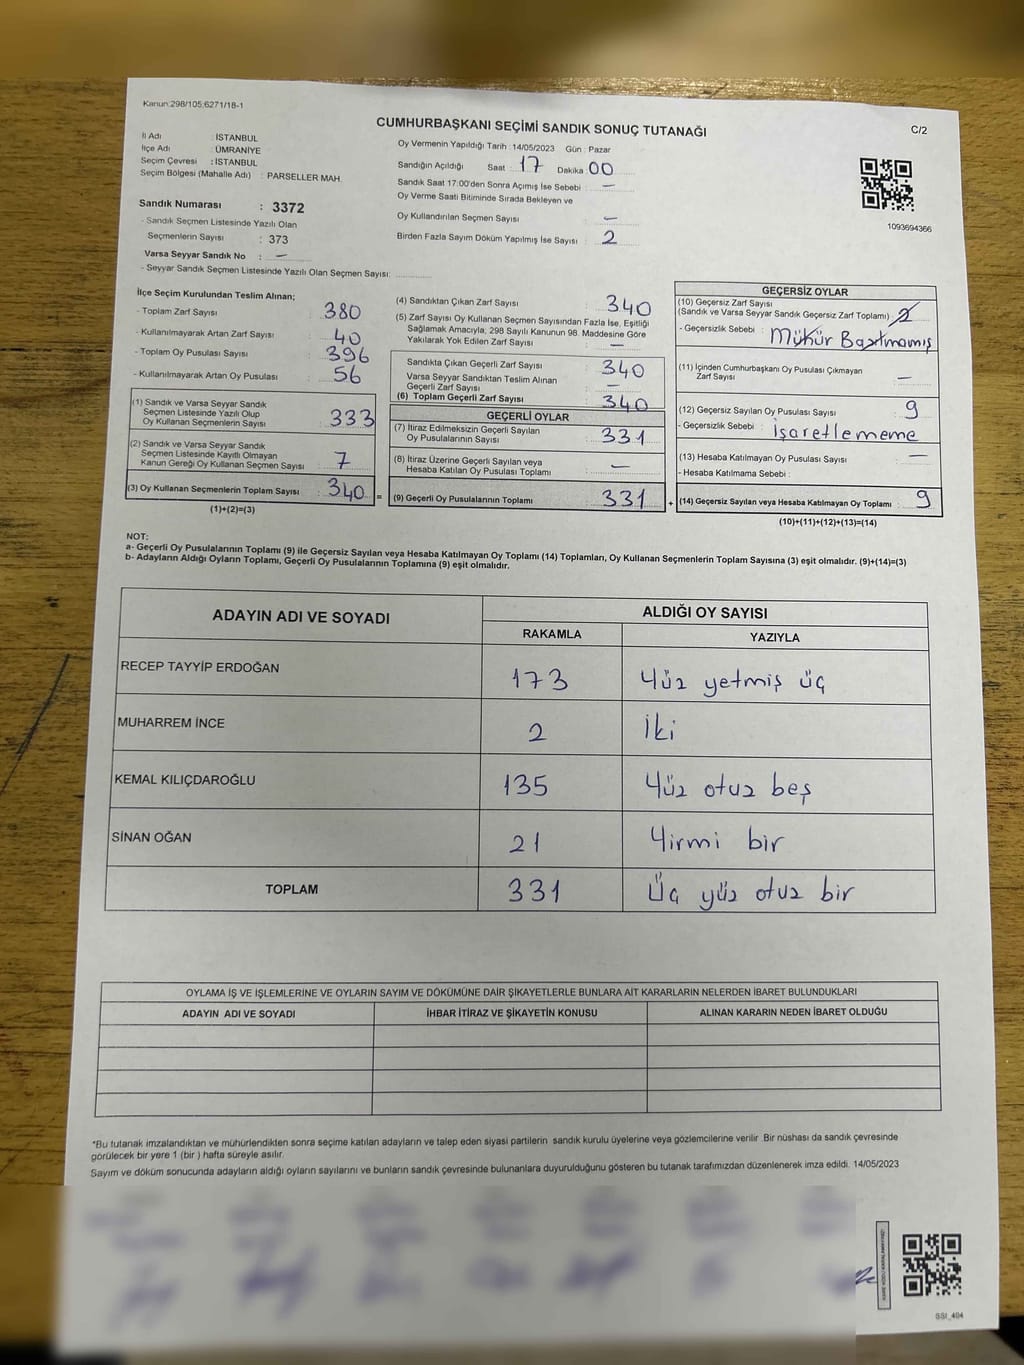 Kanun:298/105;6271/18-1
CUMHURBAŞKANI SEÇİMİ SANDIK SONUÇ TUTANAĞI
C/2
İl Adı : İSTANBUL
İlçe Adı : ÜMRANİYE
Seçim Çevresi : İSTANBUL
Seçim Bölgesi (Mahalle Adı) : PARSELLER MAH.
Sandık Numarası : 3372
- Sandık Seçmen Listesinde Yazılı Olan
Seçmenlerin Sayısı : 373
Varsa Seyyar Sandık No : —
- Seyyar Sandık Seçmen Listesinde Yazılı Olan Seçmen Sayısı:
Oy Vermenin Yapıldığı Tarih : 14/05/2023 Gün : Pazar
Sandığın Açıldığı Saat : 17 Dakika : 00
Sandık Saat 17:00'den Sonra Açımış İse Sebebi : —
Oy Verme Saati Bitiminde Sırada Bekleyen ve
Oy Kullandırılan Seçmen Sayısı : —
Birden Fazla Sayım Döküm Yapılmış İse Sayısı : 2
1093694366
İlçe Seçim Kurulundan Teslim Alınan;
- Toplam Zarf Sayısı : 380
- Kullanılmayarak Artan Zarf Sayısı : 40
- Toplam Oy Pusulası Sayısı : 396
- Kullanılmayarak Artan Oy Pusulası : 56
(1) Sandık ve Varsa Seyyar Sandık
Seçmen Listesinde Yazılı Olup
Oy Kullanan Seçmenlerin Sayısı : 333
(2) Sandık ve Varsa Seyyar Sandık
Seçmen Listesinde Kayıtlı Olmayan
Kanun Gereği Oy Kullanan Seçmen Sayısı : 7
(3) Oy Kullanan Seçmenlerin Toplam Sayısı : 340 =
(1)+(2)=(3)
(4) Sandıktan Çıkan Zarf Sayısı : 340
(5) Zarf Sayısı Oy Kullanan Seçmen Sayısından Fazla İse, Eşitliği
Sağlamak Amacıyla, 298 Sayılı Kanunun 98. Maddesine Göre
Yakılarak Yok Edilen Zarf Sayısı : —
Sandıkta Çıkan Geçerli Zarf Sayısı : 340
Varsa Seyyar Sandıktan Teslim Alınan
Geçerli Zarf Sayısı : —
(6) Toplam Geçerli Zarf Sayısı : 340
GEÇERLİ OYLAR
(7) İtiraz Edilmeksizin Geçerli Sayılan
Oy Pusulalarının Sayısı : 331
(8) İtiraz Üzerine Geçerli Sayılan veya
Hesaba Katılan Oy Pusulası Toplamı : —
(9) Geçerli Oy Pusulalarının Toplamı : 331 +
GEÇERSİZ OYLAR
(10) Geçersiz Zarf Sayısı
(Sandık ve Varsa Seyyar Sandık Geçersiz Zarf Toplamı) :
- Geçersizlik Sebebi : Mühür Basılmamış
(11) İçinden Cumhurbaşkanı Oy Pusulası Çıkmayan
Zarf Sayısı : —
(12) Geçersiz Sayılan Oy Pusulası Sayısı : 9
- Geçersizlik Sebebi : işaretlememe
(13) Hesaba Katılmayan Oy Pusulası Sayısı : —
- Hesaba Katılmama Sebebi :
(14) Geçersiz Sayılan veya Hesaba Katılmayan Oy Toplamı : 9
(10)+(11)+(12)+(13)=(14)
NOT:
a- Geçerli Oy Pusulalarının Toplamı (9) ile Geçersiz Sayılan veya Hesaba Katılmayan Oy Toplamı (14) Toplamları, Oy Kullanan Seçmenlerin Toplam Sayısına (3) eşit olmalıdır. (9)+(14)=(3)
b- Adayların Aldığı Oyların Toplamı, Geçerli Oy Pusulalarının Toplamına (9) eşit olmalıdır.
ADAYIN ADI VE SOYADI ALDIĞI OY SAYISI
RAKAMLA YAZIYLA
RECEP TAYYİP ERDOĞAN 173 Yüz yetmiş üç
MUHARREM İNCE 2 İki
KEMAL KILIÇDAROĞLU 135 Yüz otuz beş
SİNAN OĞAN 21 Yirmi bir
TOPLAM 331 Üç yüz otuz bir
OYLAMA İŞ VE İŞLEMLERİNE VE OYLARIN SAYIM VE DÖKÜMÜNE DAİR ŞİKAYETLERLE BUNLARA AİT KARARLARIN NELERDEN İBARET BULUNDUKLARI
ADAYIN ADI VE SOYADI İHBAR İTİRAZ VE ŞİKAYETİN KONUSU ALINAN KARARIN NEDEN İBARET OLDUĞU
*Bu tutanak imzalandıktan ve mühürlendikten sonra seçime katılan adayların ve talep eden siyasi partilerin sandık kurulu üyelerine veya gözlemcilerine verilir Bir nüshası da sandık çevresinde
görülecek bir yere 1 (bir ) hafta süreyle asılır.
Sayım ve döküm sonucunda adayların aldığı oyların sayılarını ve bunların sandık çevresinde bulunanlara duyurulduğunu gösteren bu tutanak tarafımızdan düzenlenerek imza edildi. 14/05/2023
SSI_494